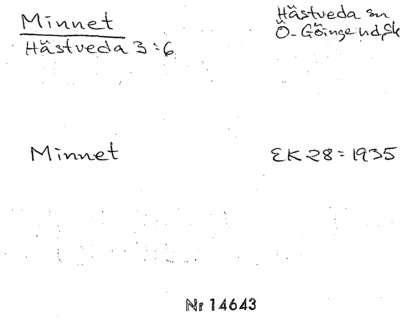 Minnet
Hästveda 3:6
Hästveda sn
Ö. Göinge hd, Sk
Minnet
EK 28 = 1935
Nr 14643